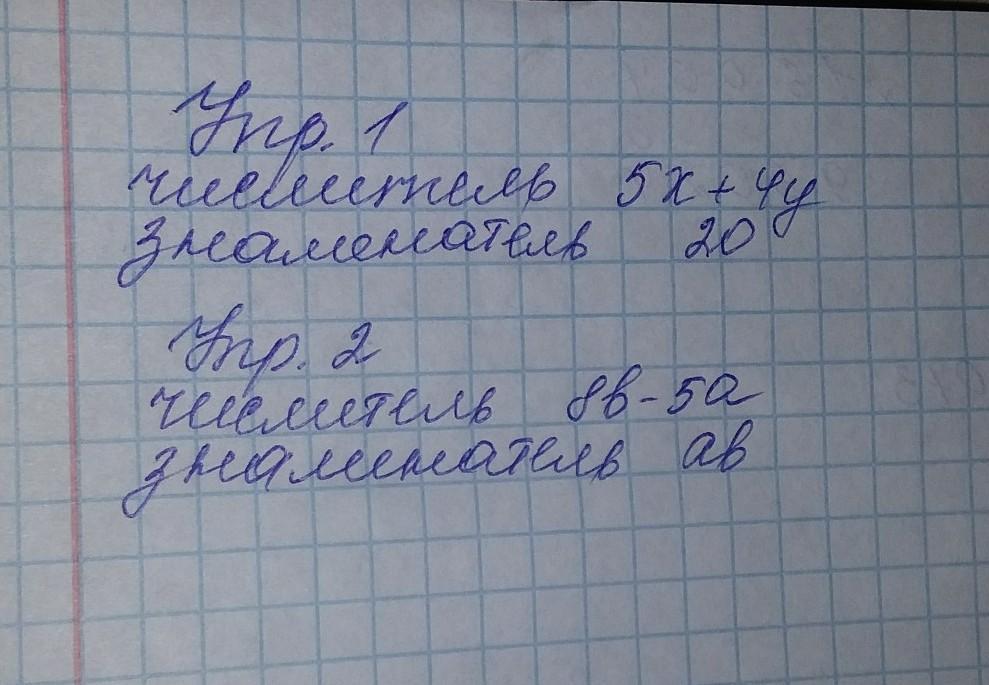 Упр. 1
числитель 5x + 4y
знаменатель 20
Упр. 2
числитель 8в - 5а
знаминатель ав